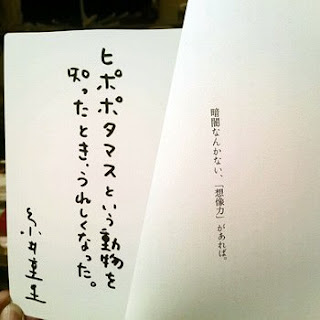 暗闇なんかない、「想像力」があれば。
ヒポポタマスという動物を
知ったとき、うれしくなった。
糸井重里